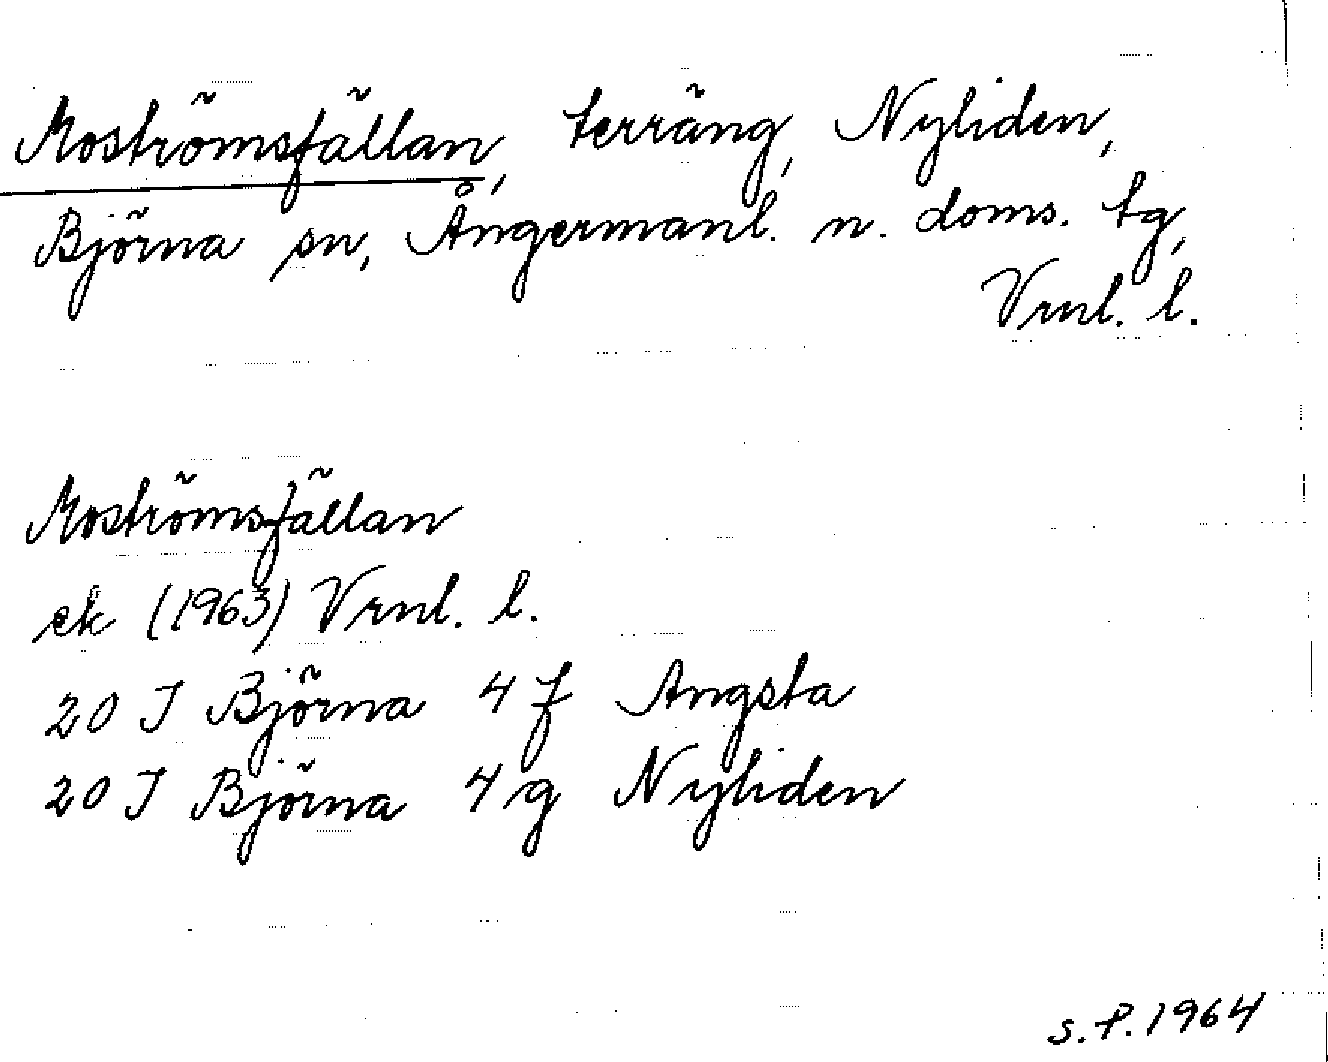 Moströmsfällan, terräng, Nyliden,
Björna sn, Ångermanl. n. doms. tg,
Vrnl. l.
Moströmsfällan
ek (1963) Vrnl. l.
20 J Björna 4 f Angsta
20 J Björna 4 g Nyliden
s. P. 1964